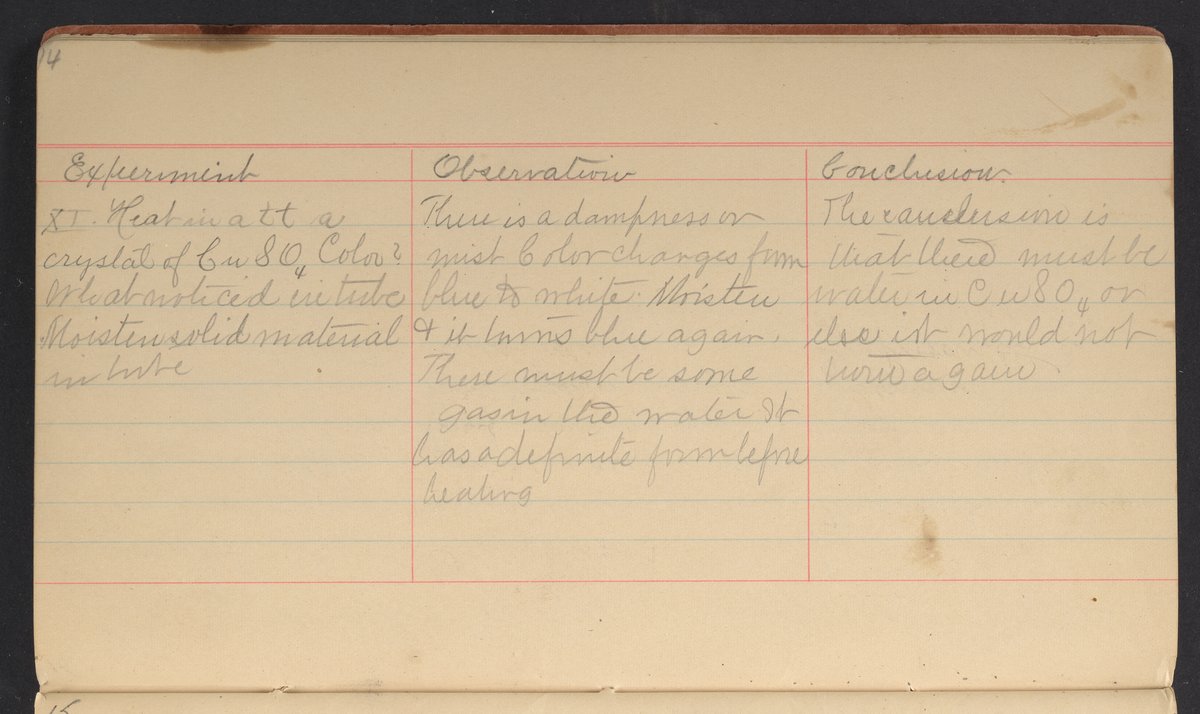 14
Experiment
XI. Heat in a tt a
crystal of CuSO₄ Color?
What noticed in tube
Moisten solid material
in tube
Observation
There is a dampness or
mist Color changes from
blue to white. Moisten
& it turns blue again.
There must be some
gas in the water It
has a definite form before
heating
Conclusion.
The conclusion is
that there must be
water in CuSO₄ or
else it would not
turn again
15